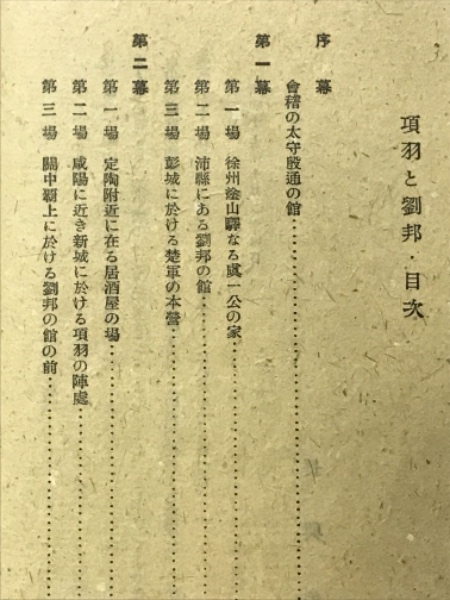 項羽と劉邦・目次
序幕
會稽の太守殷通の館……………………
第一幕
第一場 徐州塗山驛なる虞一公の家……………………
第二場 沛縣にある劉邦の館……………………
第三場 彭城に於ける楚軍の本營……………………
第二幕
第一場 定陶附近に在る居酒屋の場……………………
第二場 咸陽に近き新城に於ける項羽の陣處……………………
第三場 關中覇上に於ける劉邦の館の前……………………